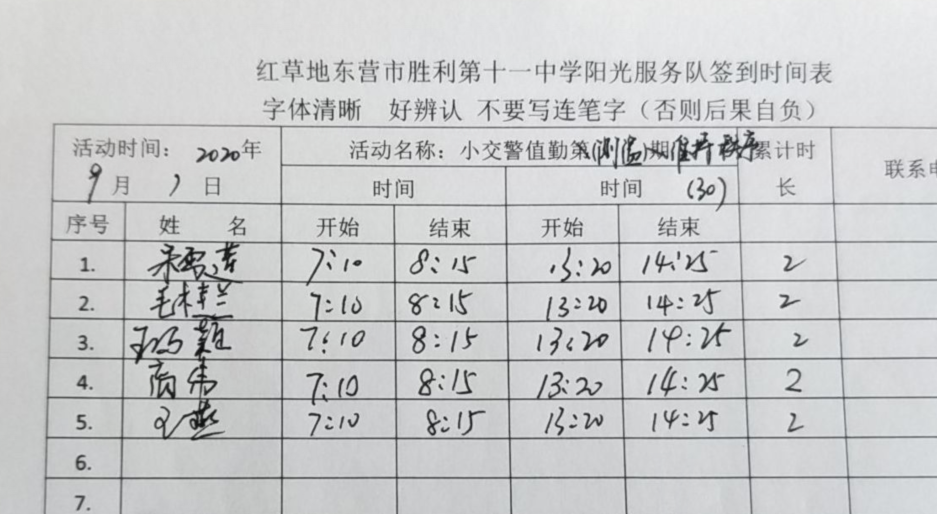 红草地东营市胜利第十一中学阳光服务队签到时间表
字体清晰 好辨认 不要写连笔字（否则后果自负）
活动时间： 2020年 活动名称：小交警值勤 秩序 累计时长
9月 日 时间 时间 (30) 联系
序号 姓 名 开始 结束 开始 结束
1. 7:10 8:15 13:20 14:25 2
2. 毛桂兰 7:10 8:15 13:20 14:25 2
3. 7:10 8:15 13:20 14:25 2
4. 7:10 8:15 13:20 14:25 2
5. 王燕 7:10 8:15 13:20 14:25 2
6.
7.